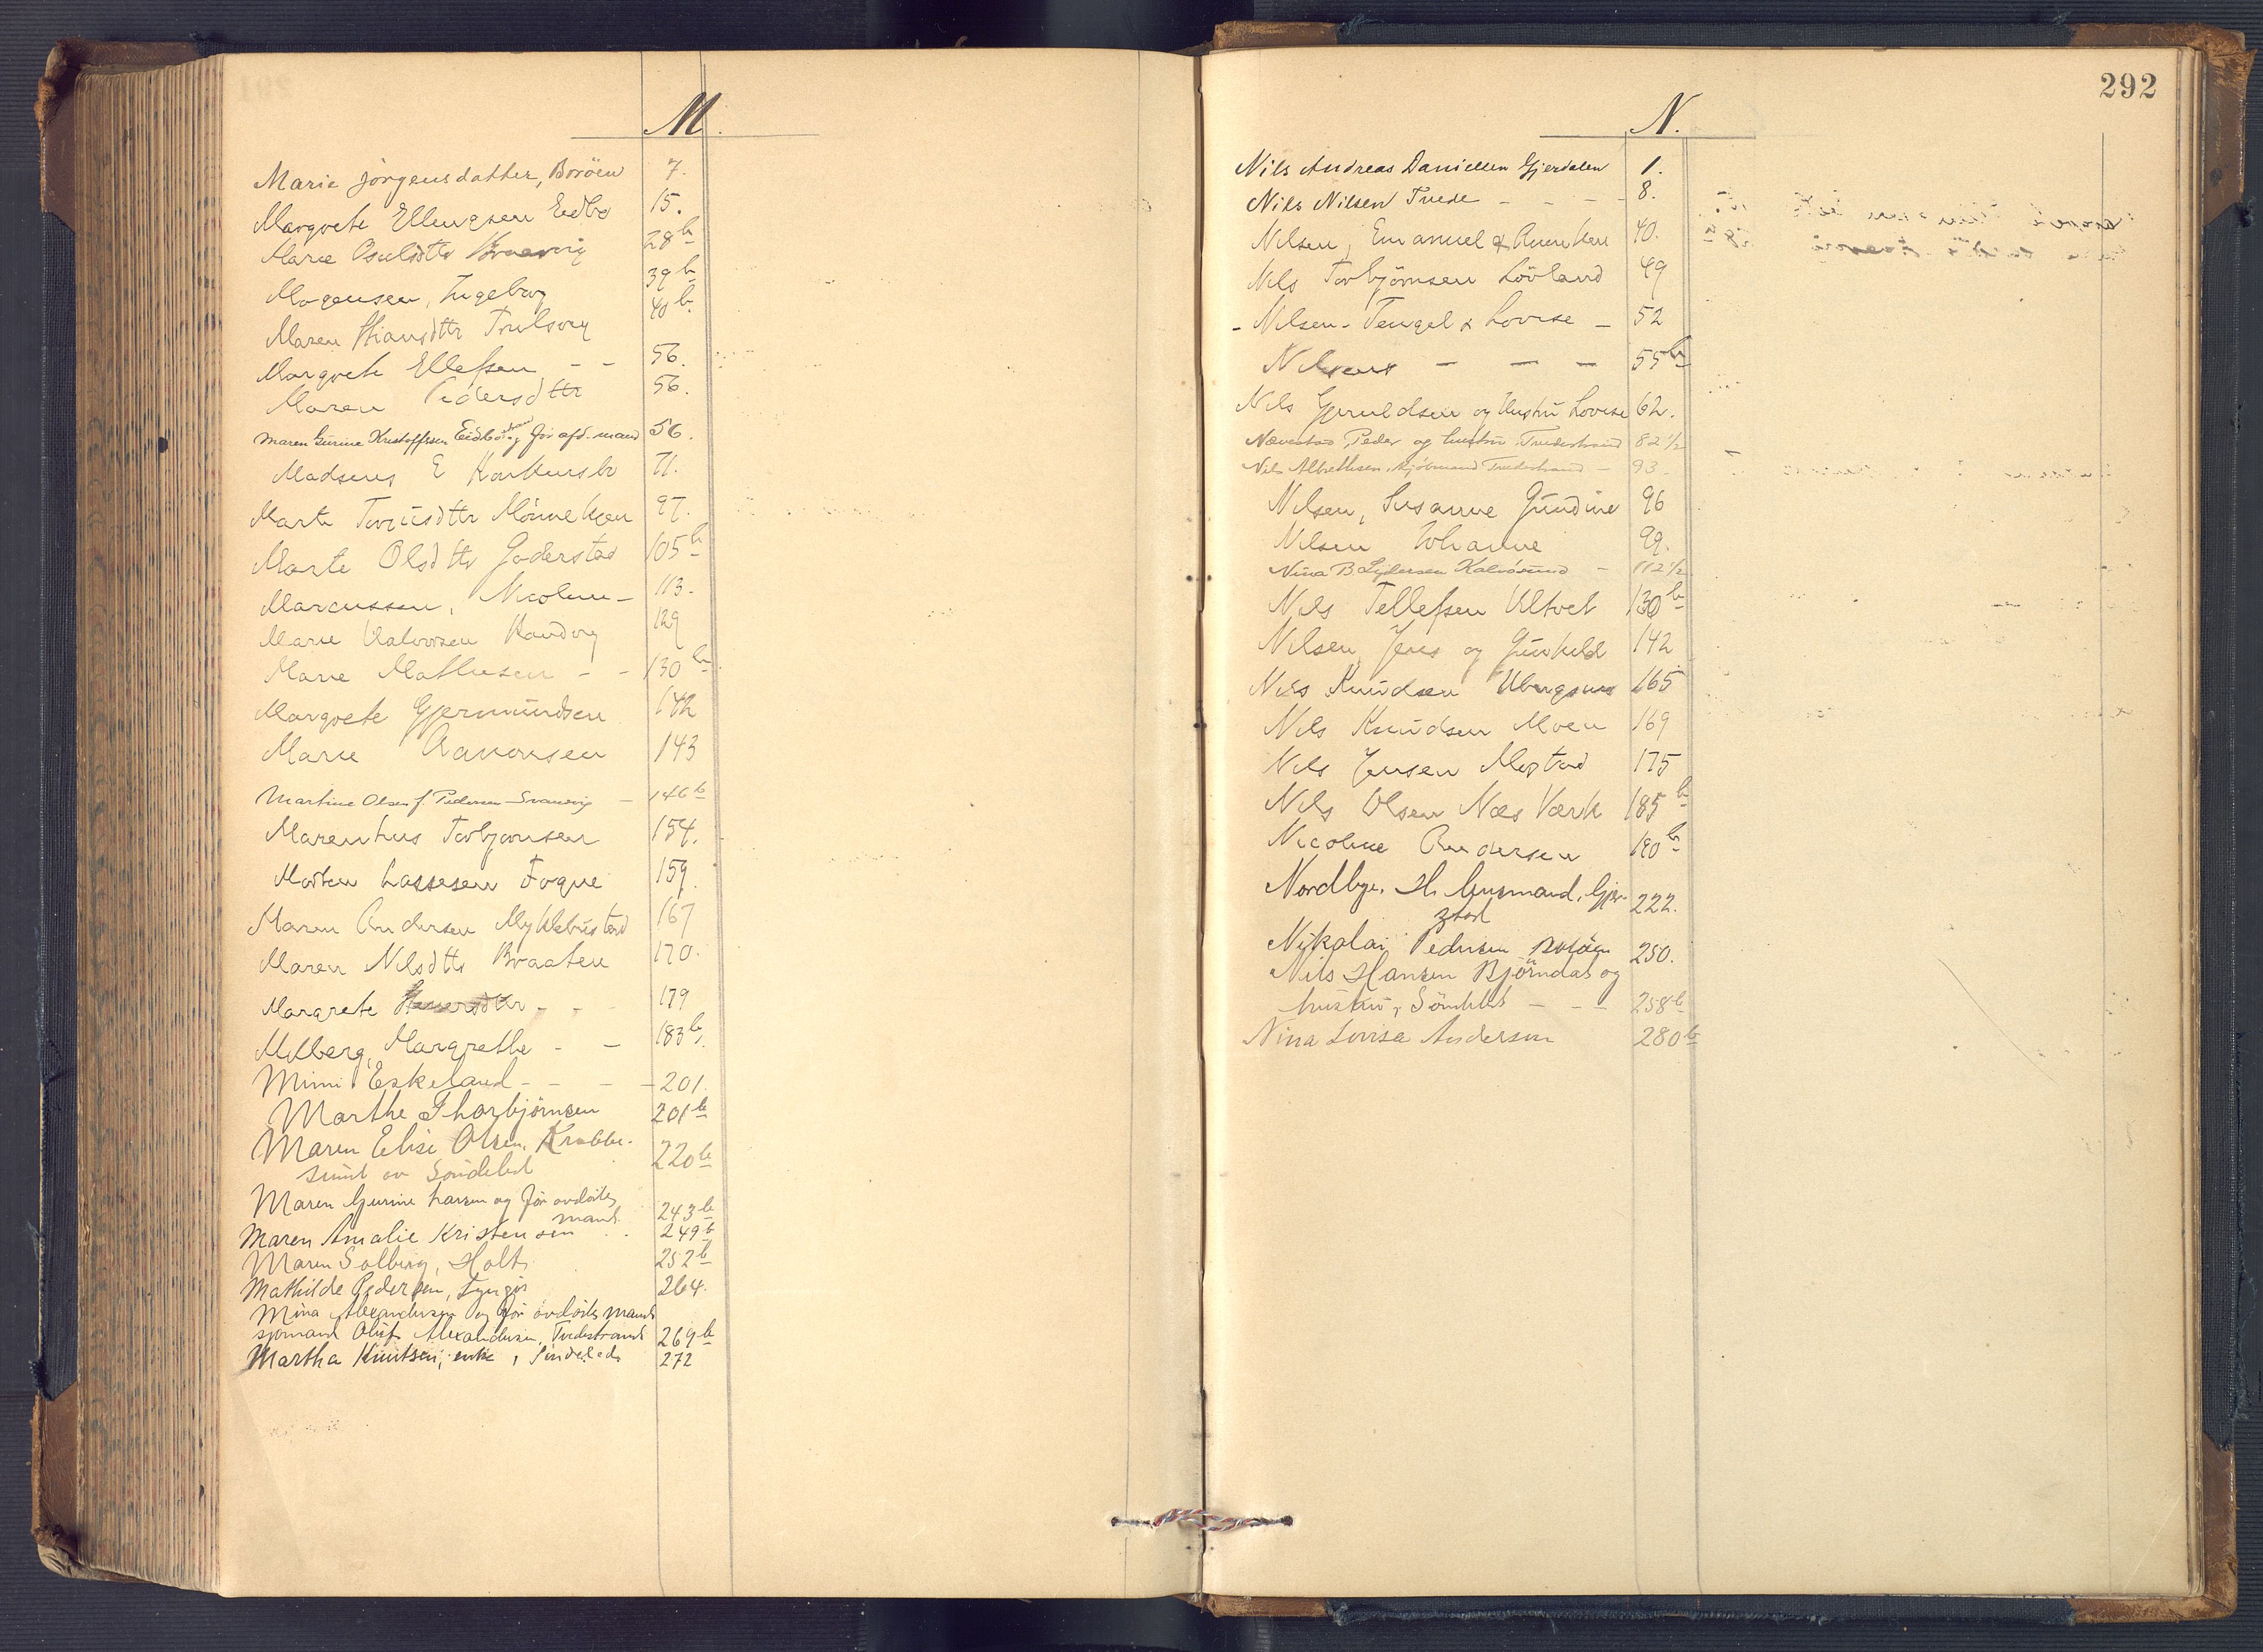 M.
Marie Jörgensdatter, Boröen 7.
Margrete Ellingsen Eidbo 15.
Marie Osulsdtr 28b
Mogensen, Ingeborg 39b
Maren Stiansdtr 40b.
Margrete Ellefsen - - 56.
Maren Pedersdtr 56.
Maren Gurine Kristoffersen Eidbo og for afd. mand 56.
Madsens E 71.
Marte 97.
Marte Olsdtr Goderstad 105b
Marcussen, Nicoline - 113.
Marie Halvorsen 129
Marie Mathisen - - 130b
Margrete Gjermundsen 142
Marie Aanonsen 143
Martine Olsen f. Pedersen Svanevig - 146b
Marenthus Torbjörnsen 154.
Morten Lassesen Fogne 159.
Maren Andersen Myklebustad 167
Maren Nilsdtr Braaten 170.
Margrete - - 179
Milberg, Margrethe - - 183b.
Mimi Eskeland - - - - 201.
Marthe Thorbjörnsen 201b
Maren Elise Olsen, Krabbe-
sund av Söndeled 220b
Maren Gurine Larsen og for avdöde
mand 243b
Maren Amalie Kristensen . . 249b
Maren Solberg, Holt. 252b
Mathilde Pedersen, Lyngör 264.
Mina Alexandersen og for avdöde mand
sjömand Oluf Alexandersen, Tvedestrand 269b
Martha Knutsen, enke, Söndeled 272
292
N.
Nils Andreas Danielsen Gjerdalen 1.
Nils Nilsen Tvede - - - - 8.
Nilsen, Emanuel & 40.
Nils Torbjörnsen Lövland 49
- Nilsen - Tengel & Lovise - 52
Nilsens - - - 55b
Nils Gjeruldsen og Hustru Lovise 62.
Nævestad, Peder og hustru Tvedestrand 82 1/2
Nils Albrethsen, kjöbmand Tvedestrand - 93.
Nilsen, Susanne Gundine 96
Nilsen Johanne 99.
Nina B. Lydersen Kalvösund - 112 1/2
Nils Tellefsen Ultvet 130b
Nilsen, Jens og Gunhild 142
Nils Knudsen 165
Nils Knudsen Moen 169
Nils Jensen Mostad 175
Nils Olsen Næs Værk 185b
Nicoline Andersen 190b
Nordbye, H. Gusmand, Gjer-
stad 222.
Nikolai Pedersen Boröen 250.
Nils Hansen Björndas og
hustru, Söndeled - - - 258b
Nina Lovisa Andersen 280b